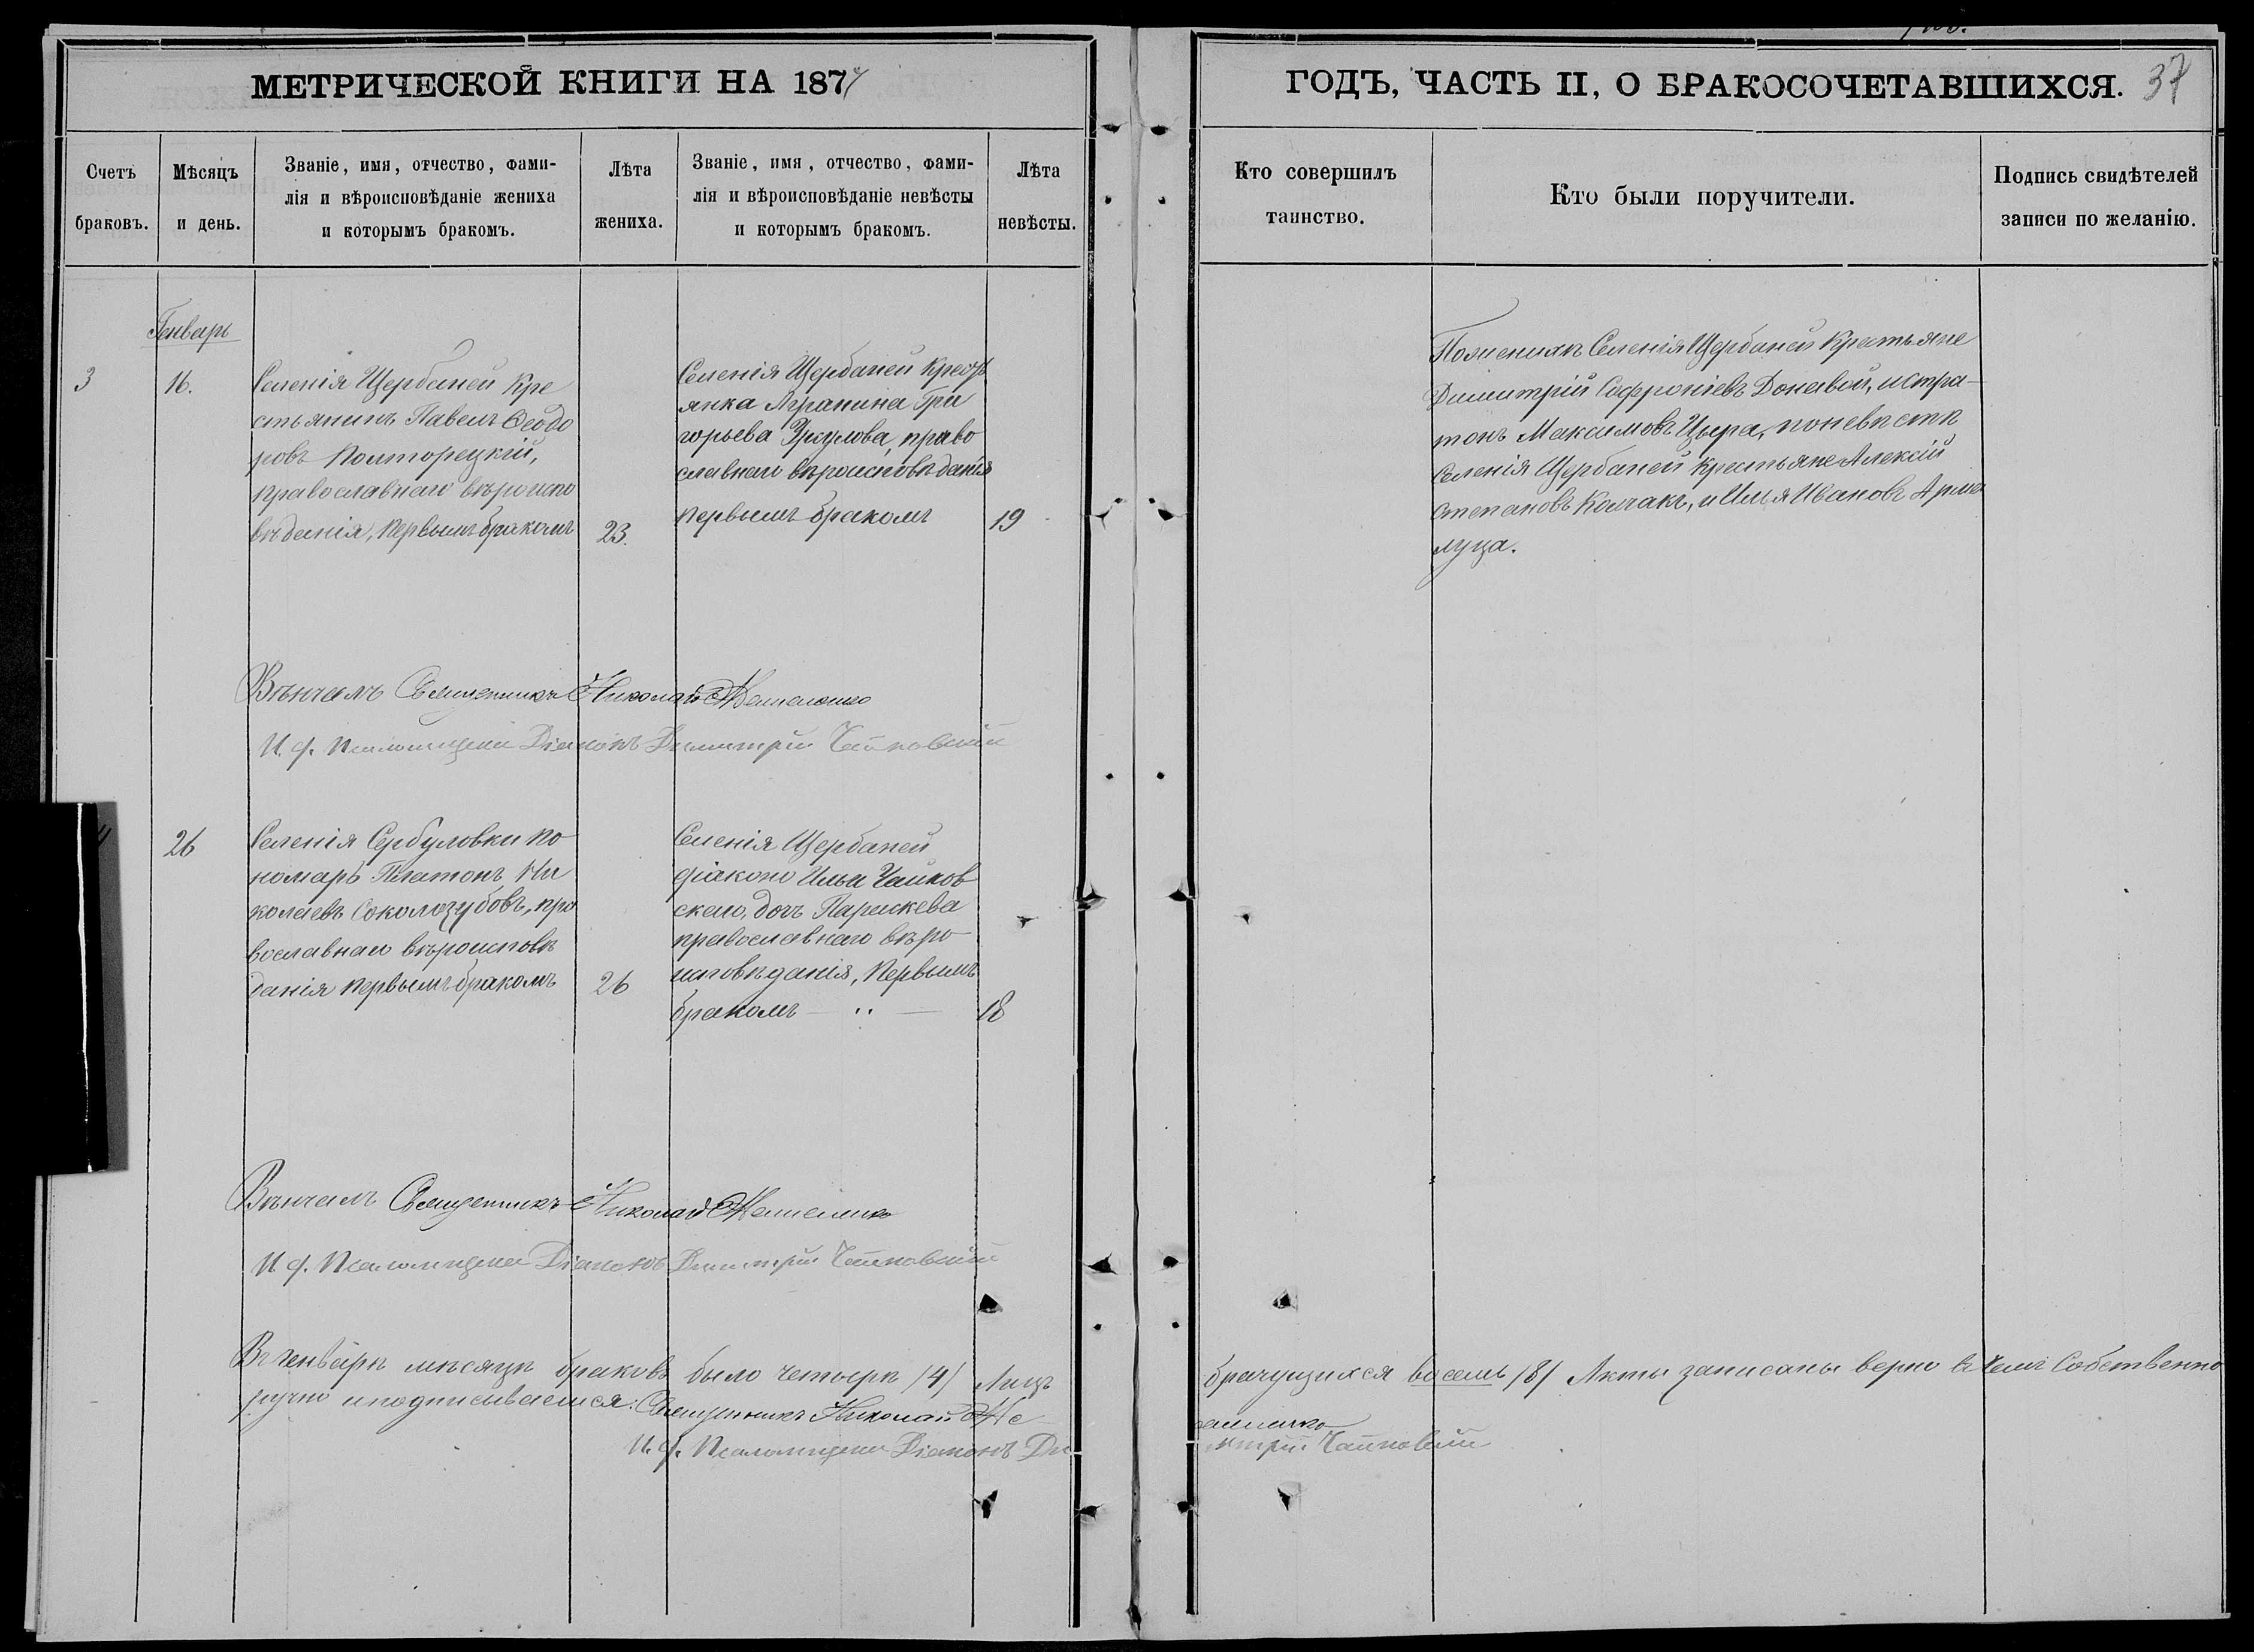 МЕТРИЧЕСКОЙ КНИГИ НА 187
ГОДЪ, ЧАСТЬ II, О БРАКОСОЧЕТАВШИХСЯ. 37
Счетъ
браковъ.
Мѣсяцъ
и день.
Званіе, имя, отчество, фами-
лія и вѣроисповѣданіе жениха
и которымъ бракомъ.
Лѣта
жениха.
Званіе, имя, отчество, фами-
лія и вѣроисповѣданіе невѣсты
и которымъ бракомъ.
Лѣта
невѣсты.
Кто совершилъ
таинство.
Кто были поручители.
Подпись свидѣтелей
записи по желанію.
Генварь
3
16.
Селенія Щербаней Кре
стьянинъ Павелъ Ѳеодо
ровъ Полторецкій,
православнаго вѣроиспо
вѣданія, первымъ бракомъ
23.
Селенія Щербаней Крест
янка Агрипина Гри
горьева Уркулова, право
славнаго вѣроисповѣданія
первымъ бракомъ
19
По женихѣ Селенія Щербаней Крестьяне
Димитрій Софроніевъ Доневой, и Стра-
тонъ Максимовъ Цыра, по невѣстѣ
Селенія Щербаней Крестьяне Алексій
Степановъ Колчакъ, и Илья Ивановъ Арма
луца.
Вѣнчалъ Священникъ Николай
И. ф. Псаломщика Діаконъ Димитрій Чайковскій
26
Селенія Сербуловки по
номарь Платонъ Ни
колаевъ Соколозубовъ, пра
вославнаго вѣроисповѣ
данія первымъ бракомъ
26
Селенія Щербаней
діакона Ильи Чайков
скаго, дочь Параскева
православнаго вѣро
исповѣданія, первымъ
бракомъ — " —
18
Вѣнчалъ Священникъ Николай
И. ф. Псаломщика Діаконъ Димитрій Чайковскій
Въ Генварѣ мѣсяцѣ браковъ было четыре /4/ Лицъ брачущихся восемь /8/ Акты записаны верно въ чемъ Собственно
ручно и подписываемся: Священникъ Николай
И. ф. Псаломщика Діаконъ Димитрій Чайковскій